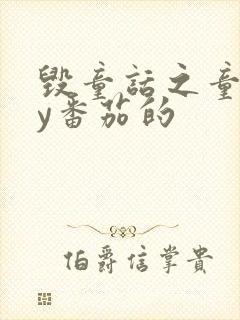 毁童话之童
y番茄的
伯爵信掌贵